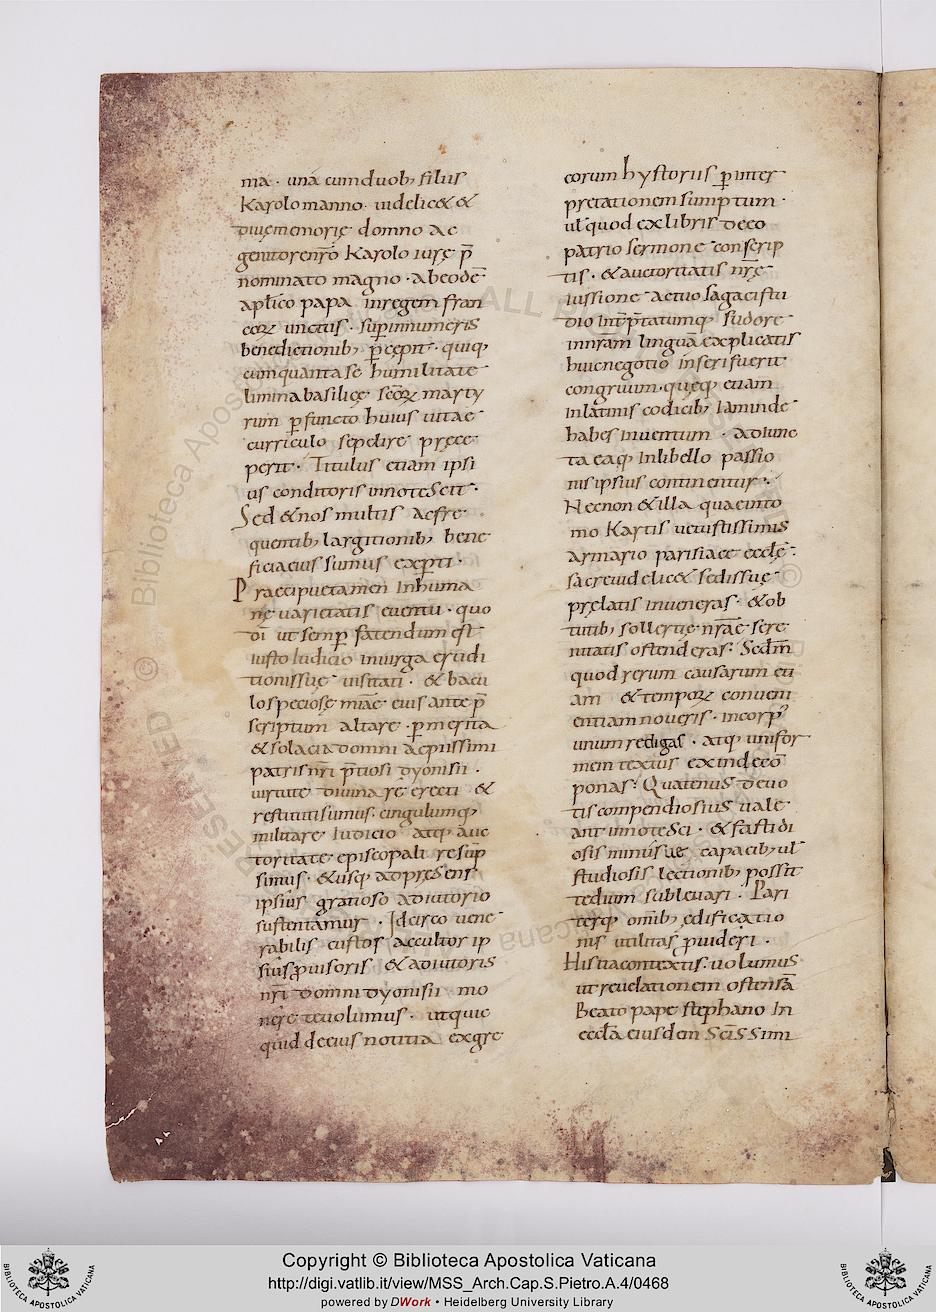 ma · una cumduob; filiis
Karolomanno · uidelic& &
diuęmemorię domno ac
genitorenr̄o Karolo iurę p̄
nominato magno · abeodē
ap̄lico papa inregem fran
corꝝ unctus · superinnumeris
benedictionib; ꝑcepit · quiq;
cumquanta se humilitate
liminabasilicę sc̄orꝝ marty
rum ꝑfuncto huius uitae
curriculo sepelire pręce
perit · Titulus etiam ipsi
us conditoris innotescit ·
Sed &nos multis acfre
quentib; largitionib; bene
ficiaeius sumus experti ·
Praecipuetamen Inhuma
nę uarietatis euentu · quo
dī ut semꝑ fatendum est
iusto Iudicio inuirga erudi
tionissuę uisitati · & bacu
lospeciosę miāe eius ante p̄
scriptum altare · ꝑmerita
& solaciadomni acpiissimi
patrisnr̄i p̄tiosi dyonisii ·
uirtute diuina rę erecti &
restitutisumus · cingulumq;
militare Iudicio atq; auc
toritate episcopali resūp
simus · &usq; adpręsens
ipsius gratioso adiutorio
sustentamur · Idcirco uene
rabilis custos accultor ip
siusꝓuisoris &adiutoris
nr̄i domni dyonisii mo
nerę teuolumus · utquic
quid deeius notitia exgrę
corum hystoriis ꝑ inter
pretationem sumptum ·
ul̄ quod exlibris deeo
patrio sermone conscrip
tis · &auctoritatis nr̄ę
iussione actuo sagacistu
dio Int̄p̄tatumq; sudore
innr̄am linguā explicatis
huicnegotio inserifuerit
congruum · quęq; etiam
inlatinis codicib; Iaminde
habes inuentum · adiunc
ta eaq; Inlibello passio
nisipsius continentur ·
Necnon &illa quaeinto
mo Kartis uetustissimis
armario parisiace eccl̄ę ·
sacrę uidelic& sedissuę
pręlatis inueneras · &ob
tutib; sollertię nr̄ae sere
nitatis ostenderas · Sedm̄
quod rerum causarum eti
am &temporꝝ conueni
entiam noueris · incorp̄
unum redigas · atq; unifor
mem textus exindecō
ponas · Quatenus deuo
tis compendiosius uale
ant innotesci · &fastidi
osis minus ue capacib; ul̄
studiosis lectionib; possit
tedium subleuari · Pari
terq; omīb; edificatio
nis utilitas ꝓuideri ·
Hisitacontextis · uolumus
ut reuelationem ostensā
Beato pape stephano In
eccl̄a eiusdem sc̄issimi
Copyright © Biblioteca Apostolica Vaticana
http://digi.vatlib.it/view/MSS_Arch.Cap.S.Pietro.A.4/0468
powered by DWork • Heidelberg University Library